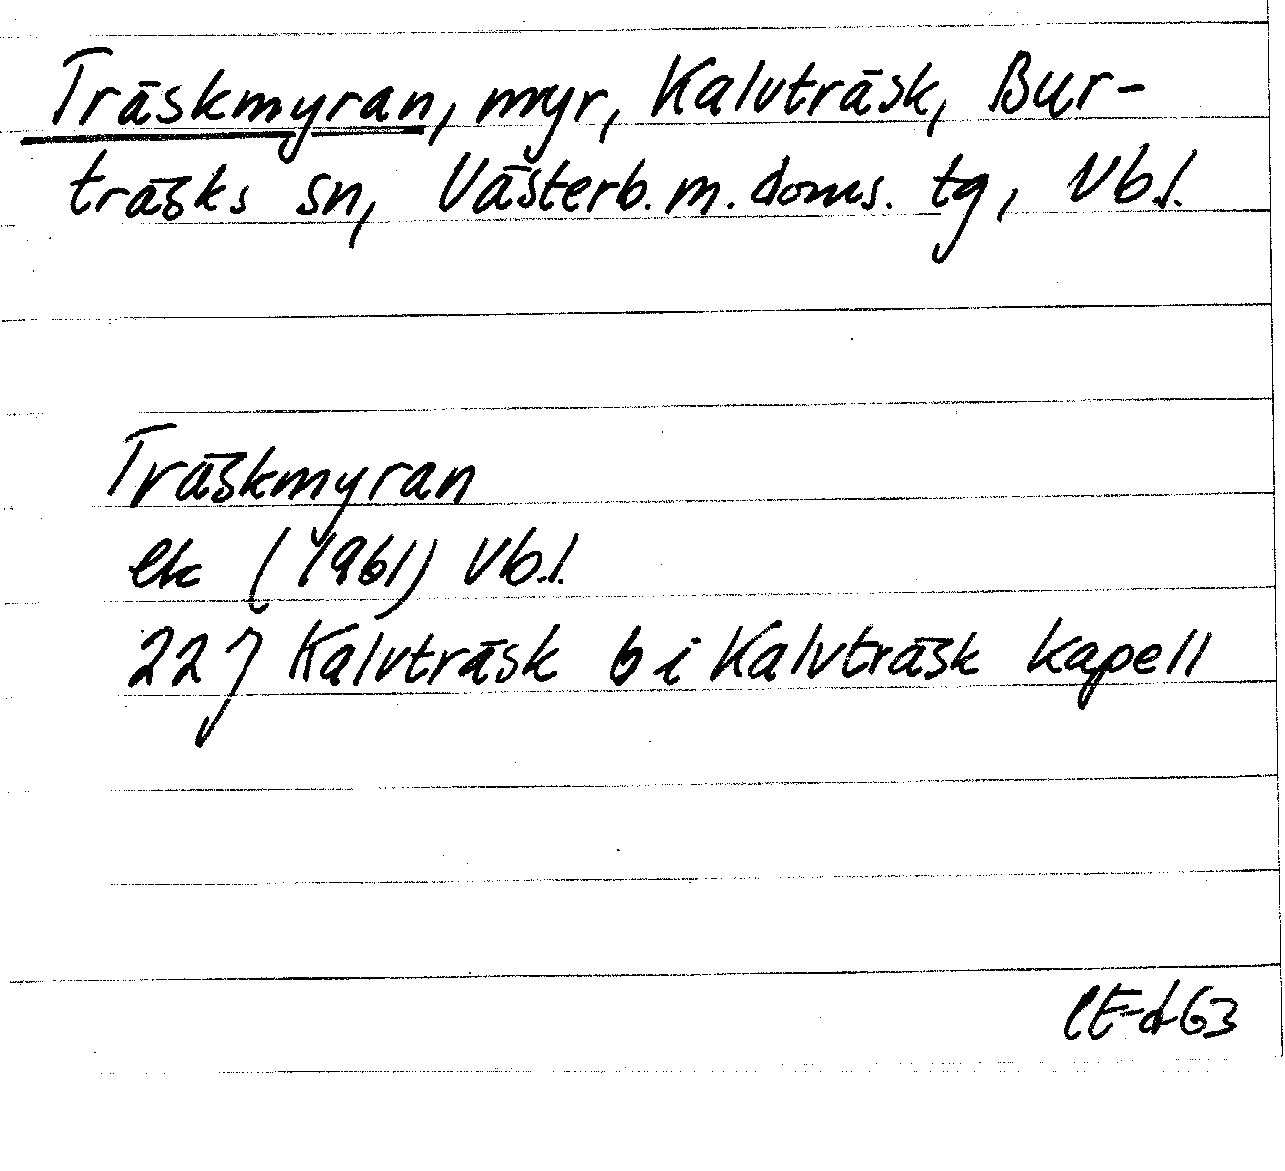 Träskmyran, myr, Kalvträsk, Bur-
träsks sn, Västerb. m. doms. tg, Vb.l.
Träskmyran
ek (1961) Vb.l.
227 Kalvträsk b i Kalvträsk kapell
CE-d 63